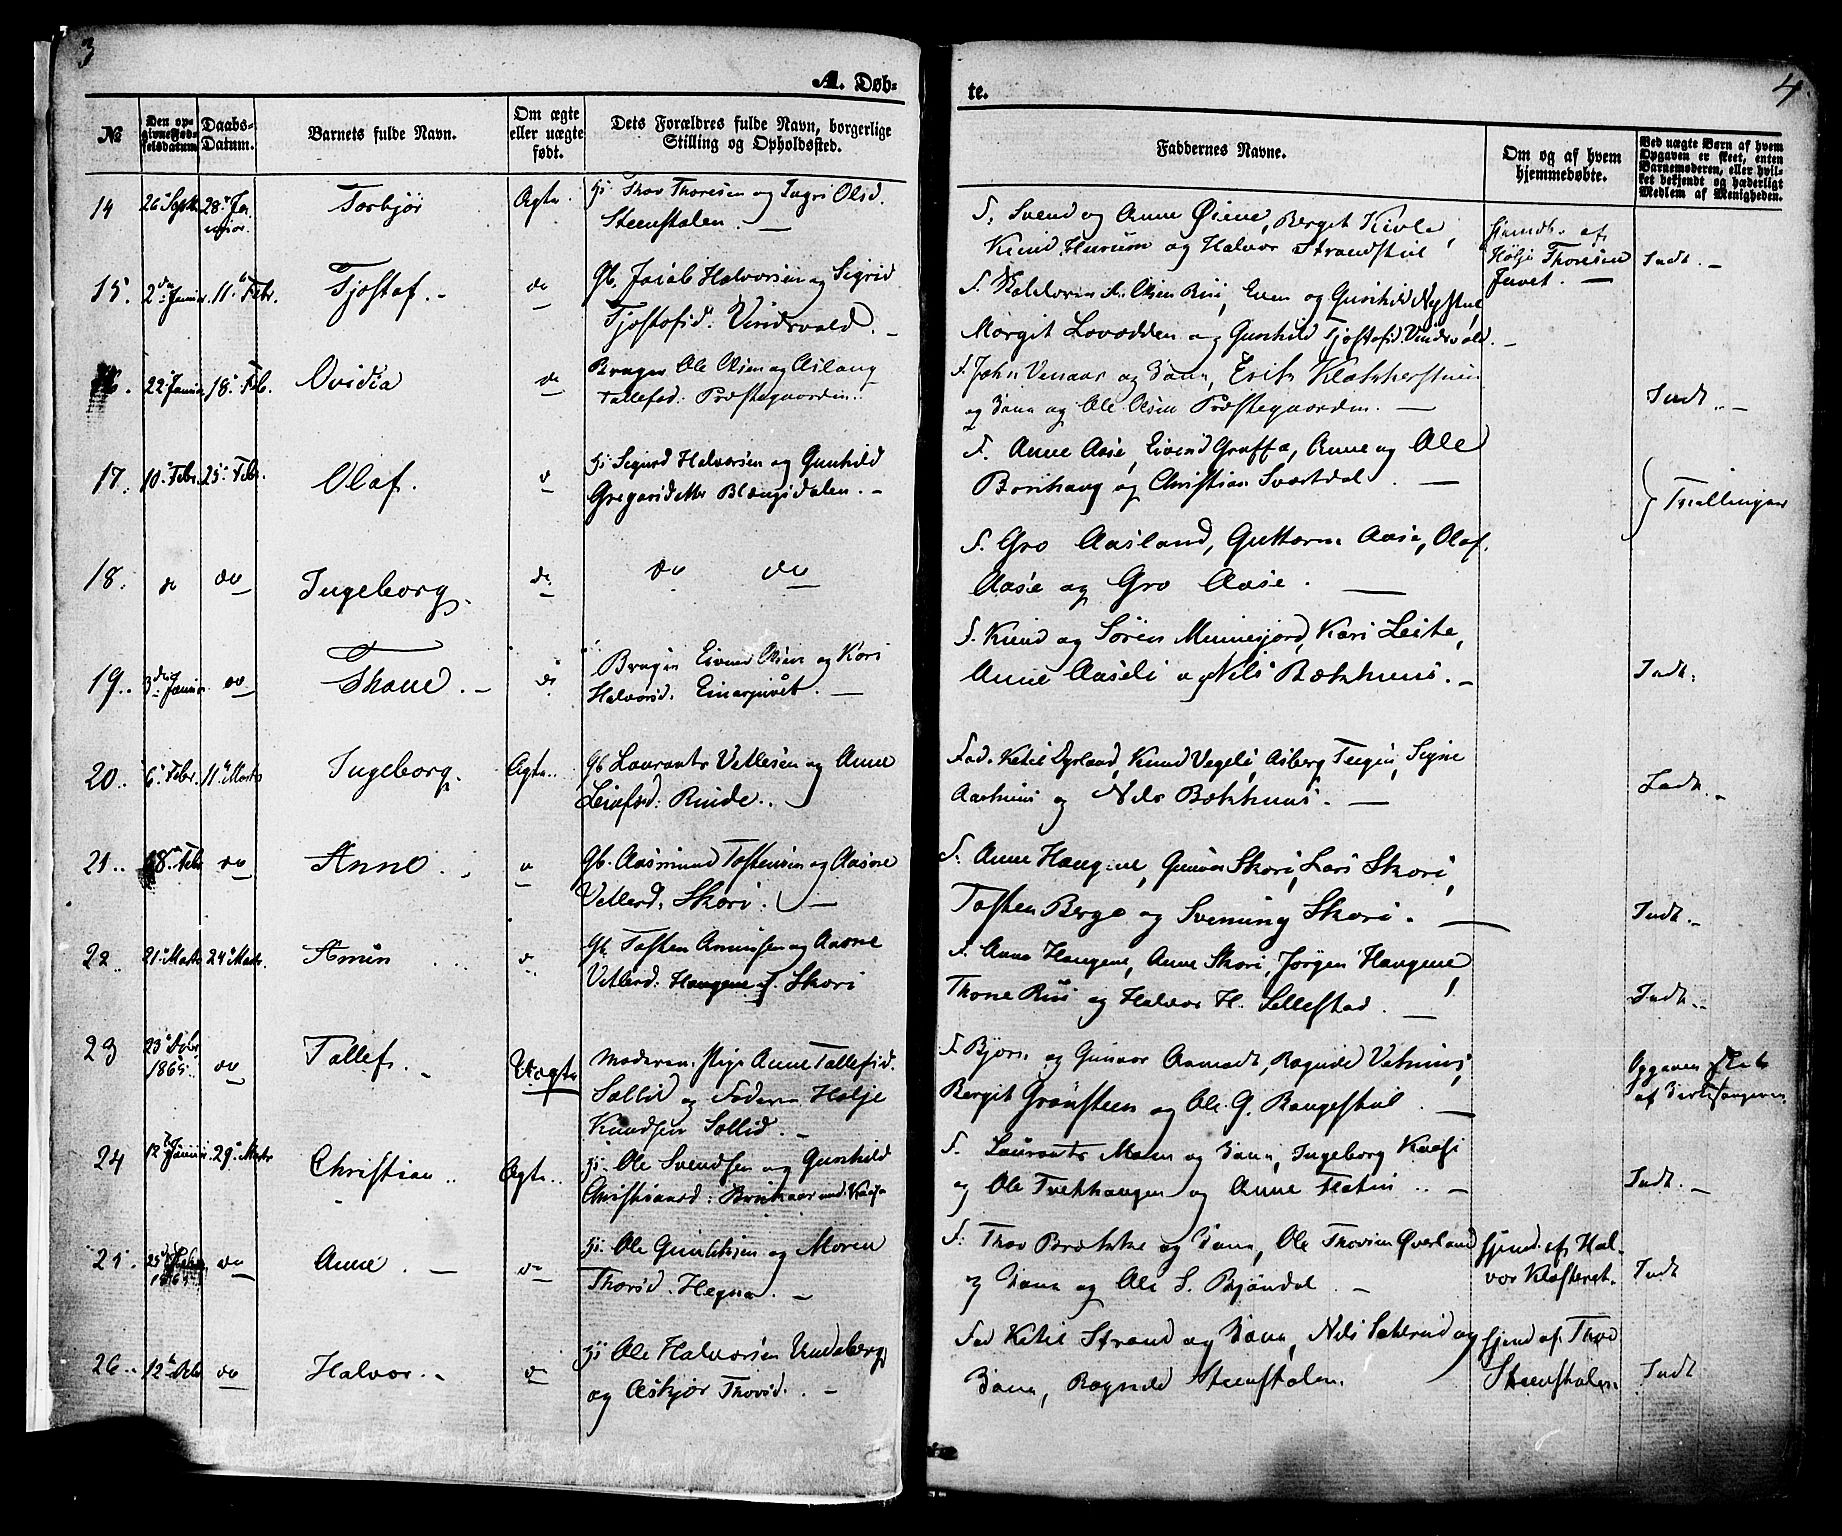 3
A. Døb-
te.
4.
№
Den op-
givne Fød-
selsdatum
Daabs-
Datum.
Barnets fulde Navn.
Om ægte
eller uægte
født.
Dets Forældres fulde Navn, borgerlige
Stilling og Opholdssted.
Faddernes Navne.
Om og af hvem
hjemmedøbte.
Ved uægte Børn af hvem
Opgaven er skeet, enten
Barnemoderen, eller hvil-
ket bekjendt og hæderligt
Medlem af Menigheden.
14 26 Septb. 28 Ja- Torbjør Ægte. Thov Thoresen og Ingri Olsd.
nuar. Steenstalen. —
F. Svend og Anne Øiene, Berget Kivle, Hjemdb. af
Knud Hurum og Halvor Strandstul Hølje Thoresen Indt. —
Juvet. —
15. 2den Januar. 11te Febr. Tjostof. — do Gb. Jacob Halvorsen og Sigrid
Tjostofsd. Vindsvald. —
F. Olsen Rui, Even og Gunhild Nystul,
Margit Lovodden og Gunhild Tjostofsd. Vindsvald. —
16. 22 Januar 18. Feb. Ovidia do Bruger Ole Olsen og Aslaug
Tallefsd: Præstegaarden.
F. John Venaas og Kona, Erik
og Kona og Ole Olsen Præstegaarden. — Indt. —
17. 10. Febr. 25. Febr. Olaf. Sigurd Halvorsen og Gunhild
Gregarsdatter Blængsdalen. —
F. Anne Aase, Eivind Graffa, Anne og Ole
Borihaug og Christian Svartdal. — } Tvillinger
18. do do Ingeborg. do do do
F. Gro Aasland, Guttorm Aase, Olaf
Aase og Gro Aase. —
19. 3die Januar do Thone. — do Bruger Eivind Olsen og Kari
Halvorsd. Einarjuvet. —
F. Knud og Søren Minnesjord, Kari Leite,
Anne Aaseli og Nils Bækhuus. — Indt.
20. 6. Febr. 11te Marts Ingeborg. Ægte. Gb Laurants Vetlesen og Anne
Leifsd: Rinde.
Fad. Ketil Dyrland, Knud Vegeli, Asberg Teigen, Signe
Aarhuus og Nils Bækhuus. — Indt. —
21. 18. Feb. do Anne. do Gb. Aasmund Tostensen og Aasne
Vetlesd. Skori. —
F. Anne Haugene, Gunvor Skori, Lars Skori,
Tosten Berge og Svenung Skori. — Indt. —
22. 21. Marts 24de Marts. Amun do Gb Tosten Amundsen og Aasne
Vetlesd: Haugene af Skori
F. Anna Haugene, Anne Skori, Jørgen Haugene,
Thone Rui og Halvor H. Sellestad. — Indt. —
23 23de do Tallef. — Uægte Moderen: Pige Anne Tallefsd.
1865. Sollid og Faderen Hølje
Knudsen Sollid. —
F. Bjørn og Gunvor Aamodt, Ragnild Vethuus, Opgaven skeet
Bergit Grønsteen og Ole G. Baugestul. — af
24 12te Januar. 29. Marts Christian. Ægte. Ole Svendsen og Gunhild
Christiansd: Brukaas
F. Laurants Moen og Kona, Ingeborg Kaasi
og Ole Tvethaugen og Anne Flatin. — Indt. —
25. 25de do Anne. — do Ole Gunleiksen og Maren
Thorsd. Hegna. —
F: Thov Brække og Kona, Ole Thovsen Øverland Hjemd. af Hal-
og Kona og Ole S. Bjøndal. — vor Klosteret. Indt
26. 12te do Halvor. — do Ole Halvorsen Undeberg
og Asbjør Thovsd. —
Fad Ketil Strand og Kona, Nils Sæterud og Hjemd af Thov
Kona, Ragnild Steenstalen. Steenstalen Indt